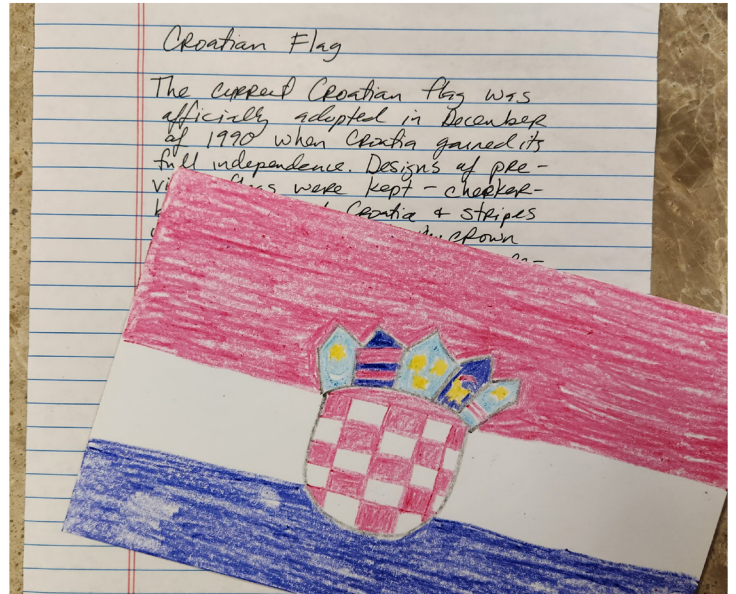 Croatian Flag
The current Croatian flag was
officially adopted in December
of 1990 when Croatia gained its
full independence. Designs of pre-
were kept - checker-
Croatia & stripes
crown